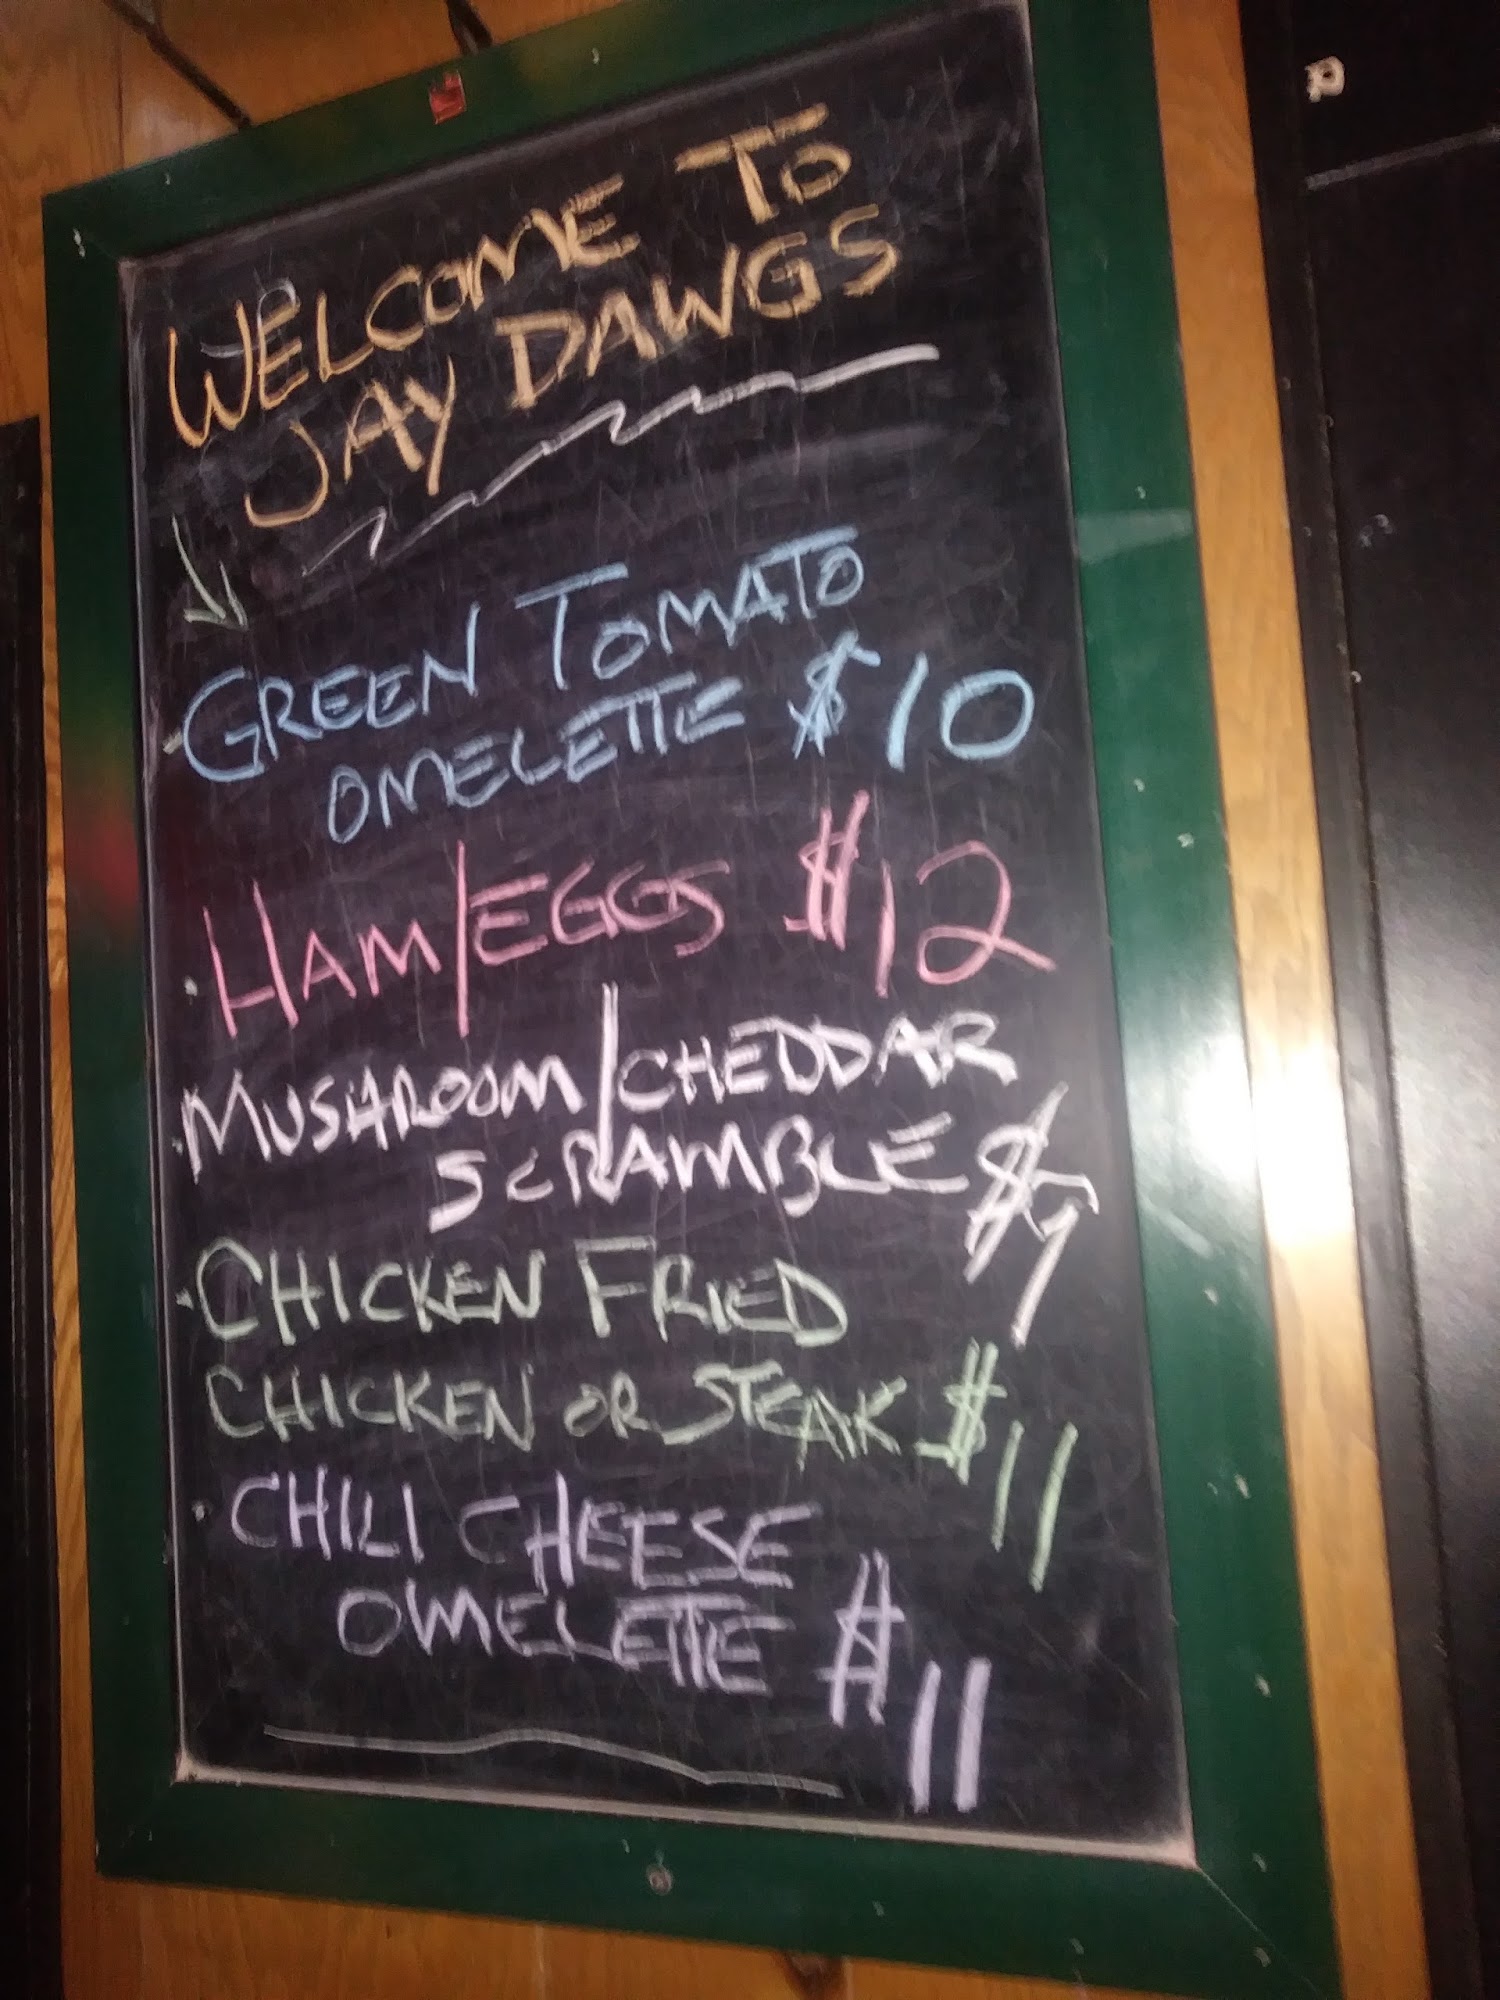 WELCOME TO
JAY DAWGS
GREEN TOMATO
OMELETTE $10
HAM/EGGS $12
MUSHROOM/CHEDDAR
SCRAMBLE $9
CHICKEN FRIED
CHICKEN OR STEAK $11
CHILI CHEESE
OMELETTE $11